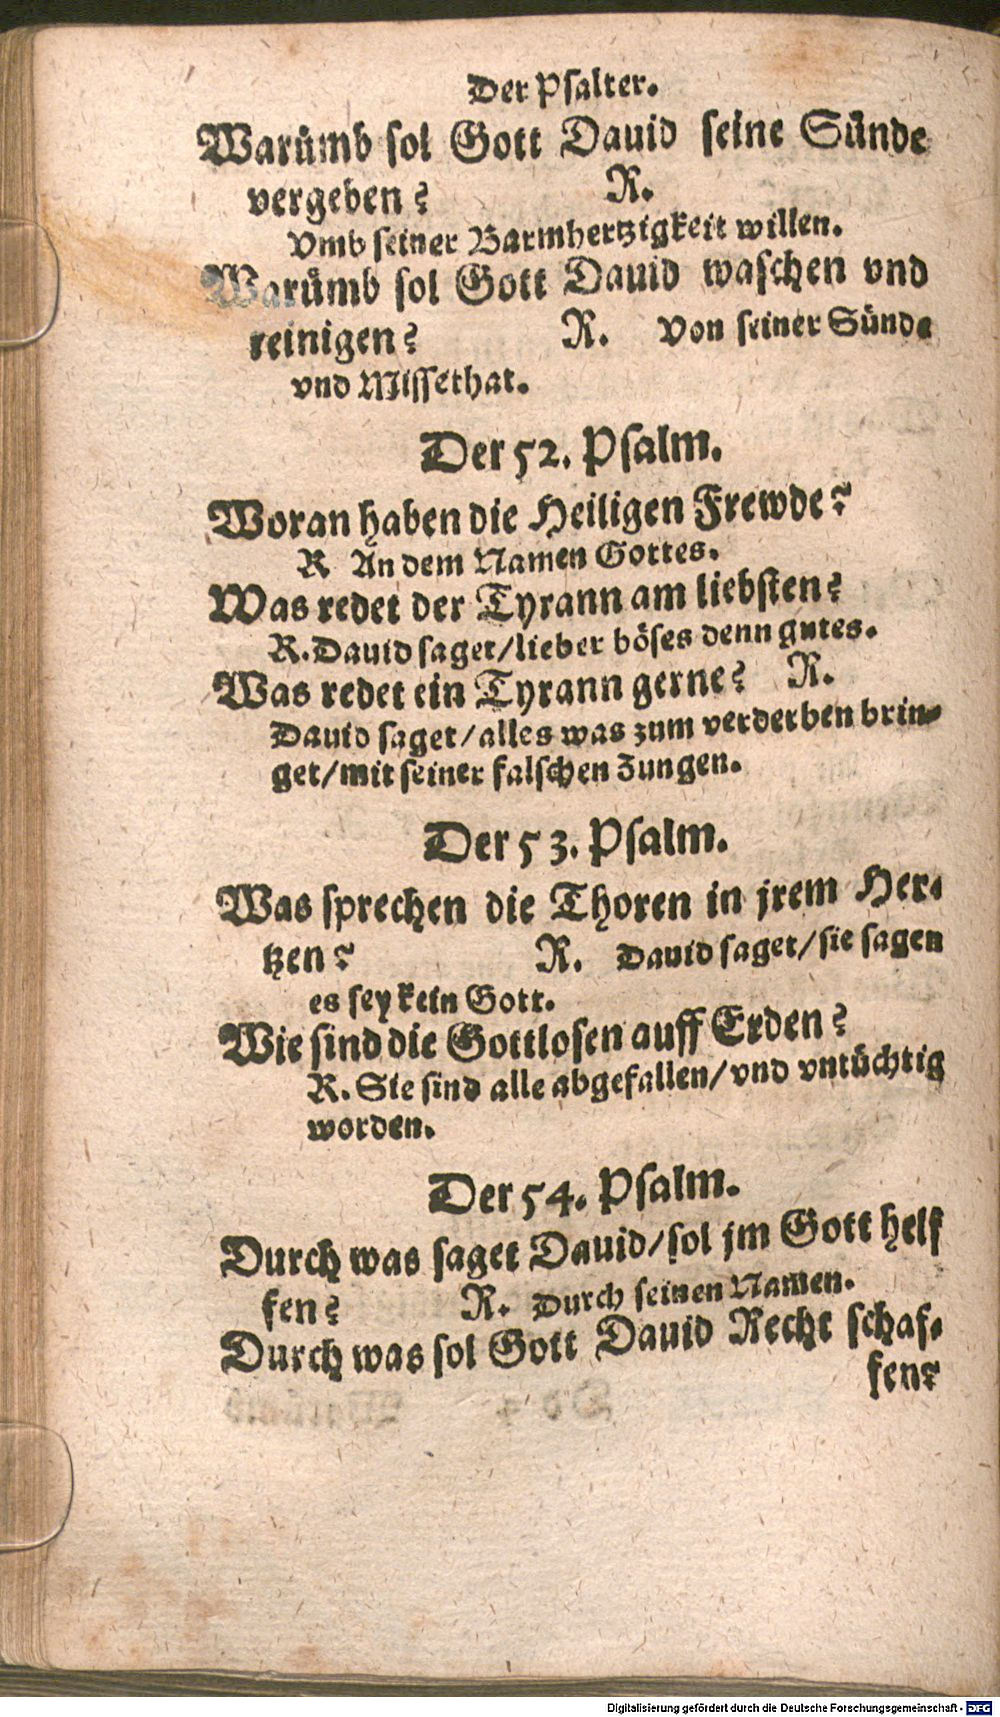 Der Psalter.
Warümb sol Gott Dauid seine Sünde
vergeben? R.
Vmb seiner Barmhertzigkeit willen.
Warümb sol Gott Dauid waschen vnd
reinigen? R. Von seiner Sünde
vnd Missethat.
Der 52. Psalm.
Woran haben die Heiligen Frewde?
R An dem Namen Gottes.
Was redet der Tyrann am liebsten?
R. Dauid saget/lieber böses denn gutes.
Was redet ein Tyrann gerne? R.
Dauid saget/alles was zum verderben brin-
get/mit seiner falschen Zungen.
Der 53. Psalm.
Was sprechen die Thoren in jrem Her-
tzen? R. Dauid saget/sie sagen
es sey kein Gott.
Wie sind die Gottlosen auff Erden?
R. Sie sind alle abgefallen/vnd vntüchtig
worden.
Der 54. Psalm.
Durch was saget Dauid/sol jm Gott helf
fen? R. Durch seinen Namen.
Durch was sol Gott Dauid Recht schaf-
fen?
Digitalisierung gefördert durch die Deutsche Forschungsgemeinschaft - DFG